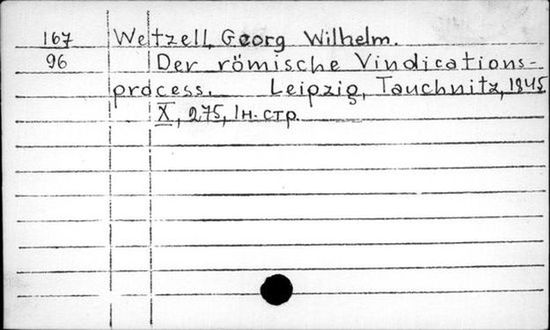 167 Wetzell, Georg Wilhelm.
96 Der römische Vindications-
process. Leipzig, Tauchnitz, 1845
X, 275, 1 н. стр.